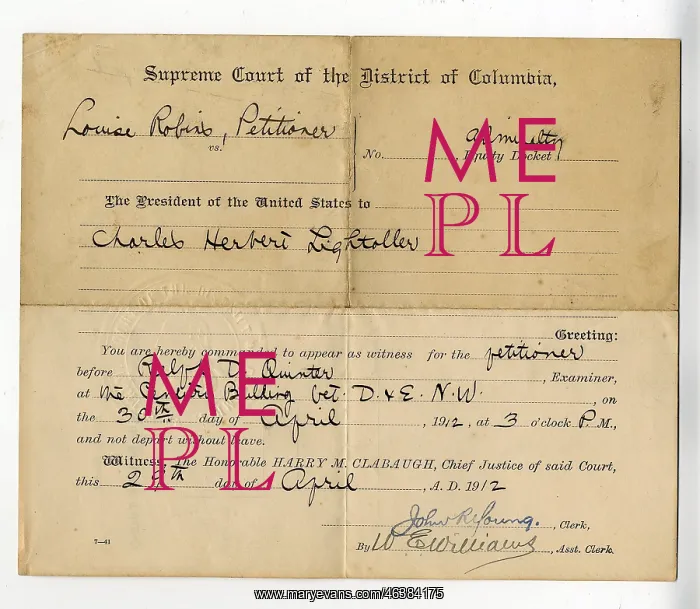 Supreme Court of the District of Columbia,
Louise Robins, Petitioner
vs.
Admiralty
No. , Equity Docket
The President of the United States to
Charles Herbert Lightoller
Greeting:
You are hereby commanded to appear as witness for the petitioner
before D. Quinter , Examiner,
at the Building bet. D & E. N.W. , on
the 30th day of April , 1912, at 3 o'clock P.M.,
and not depart without leave.
Witness, The Honorable HARRY M. CLABAUGH, Chief Justice of said Court,
this 29th day of April , A. D. 1912
John R. Young. , Clerk,
7—41
By W E Williams , Asst. Clerk.
ME
PL
ME
PL
www.maryevans.com/46384175